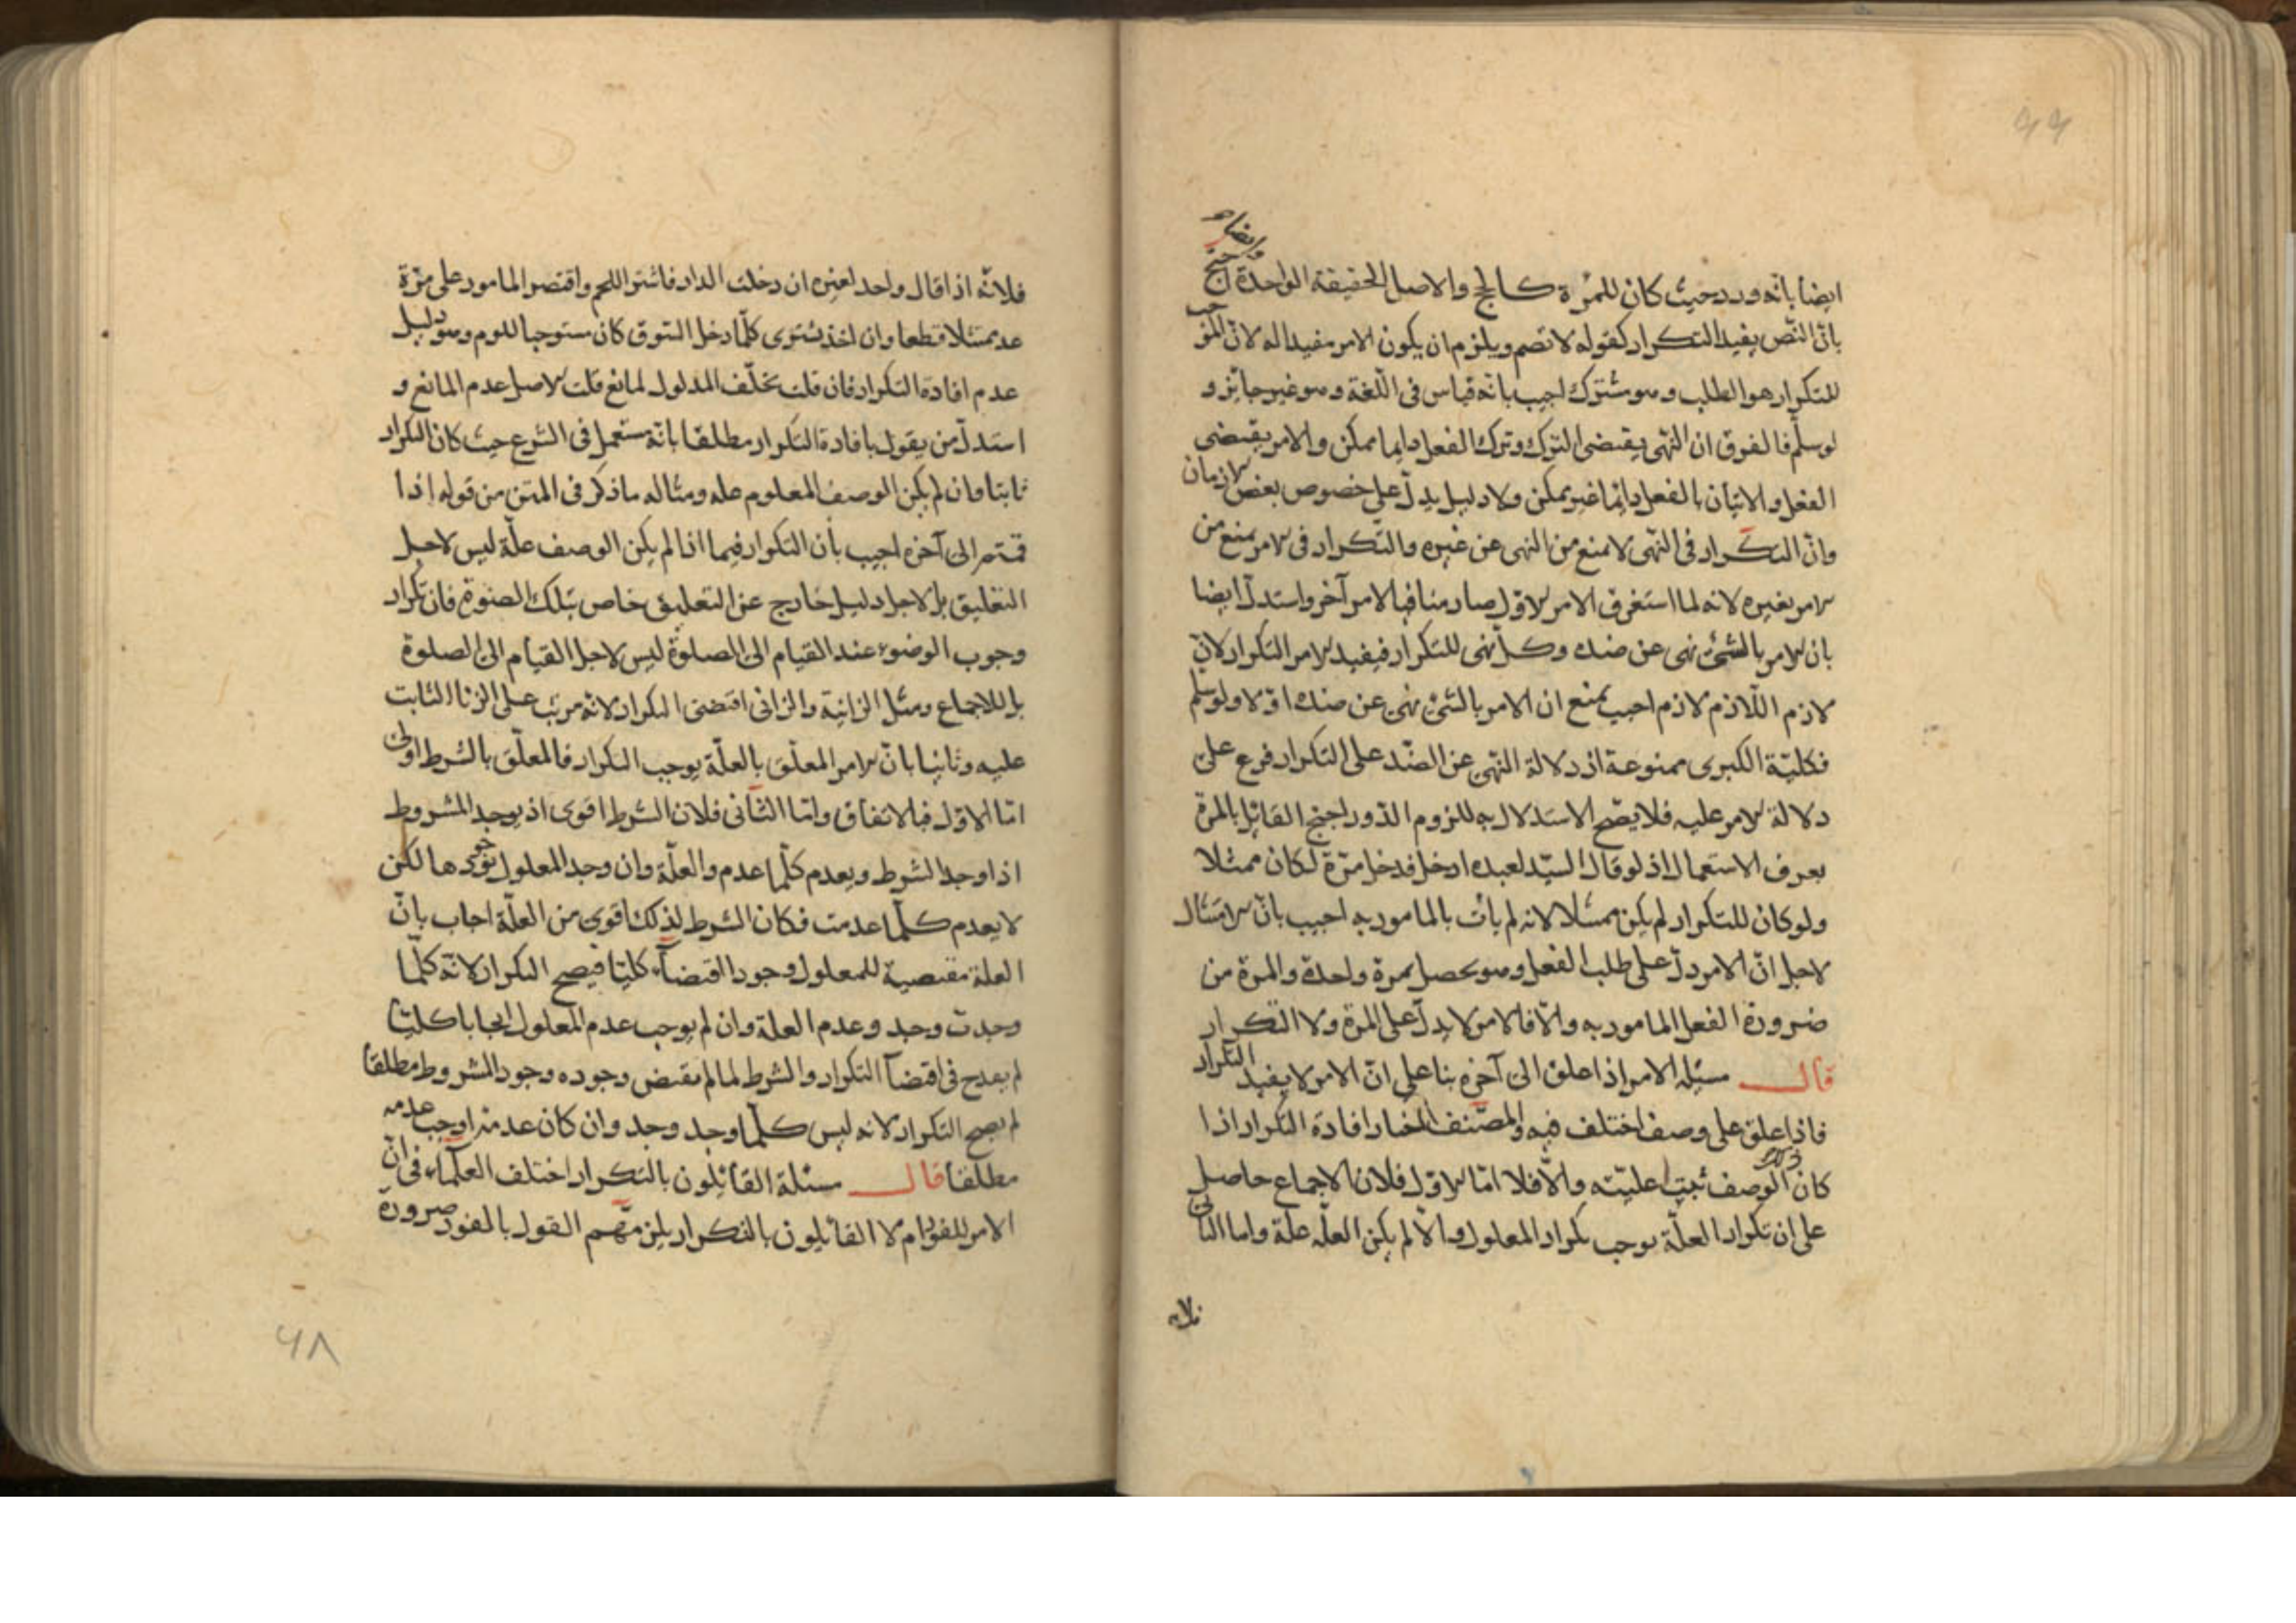 ٤٩
ايضا
ايضا بانه ورد حيث كان للمرة كالحج والاصل الحقيقة الواحدة احتج
بانّ النّص يفيد التكرار كقوله لا تصم ويلزم ان يكون الامر مفيدا له لانّ الموجب
للتكرار هو الطلب وهو مشترك اجيب بانّه قياس فى اللّغة وهو غير جايز و
لو سلّم فالفرق ان النّهى يقتضى الترك وترك الفعل دايما ممكن والامر يقتضى
الفعل والاتيان بالفعل دايما غير ممكن ولا دليل يدلّ على خصوص بعض الازمان
وانّ التكرار فى النّهى لا يمنع من النهى عن غيره والتكرار فى الامر يمنع من
الامر بغيره لانه لما استغرق الامر الاول صار منافيا لامر آخر واستدلّ ايضا
بان الامر بالشئ نهى عن ضده وكلّ نهى للتكرار فيفيد الامر التكرار لانّ
لازم اللّازم لازم اجيب بمنع ان الامر بالشئ نهى عن ضده اوّلا ولو سلم
فكليّة الكبرى ممنوعة اذ دلالة النّهى عن الضّد على التكرار فرع على
دلالة الامر عليه فلا يصّح الاستدلال به للزوم الدّور احتج القايل بالمرة
بعرف الاستعمال اذ لو قال السيّد لعبده ادخل فدخل مرّة لكان ممتثلا
ولو كان للتكرار لم يكن ممتثلا لانه لم يأت بالمامور به اجيب بانّ الامتثال
لاجل انّ الامر دلّ على طلب الفعل وهو يحصل بمرة واحدة والمرة من
ضرورة الفعل المامور به والّا فالامر لا يدلّ على المرة ولا التكرار
قال مسئلة الامر اذا علق الى آخره بنا على انّ الامر لا يفيد التكرار
فاذا علق على وصف اختلف فيه والمصّنف اختار افادة التكرار اذا
كان ذلك الوصف ثبت عليّته والّا فلا امّا الاول فلان الاجماع حاصل
على ان تكرار العلّة يوجب تكرار المعلول والّا لم يكن العلّه علة واما الثانى
فلانه
فلانّه اذا قال واحد لغيره ان دخلت الدار فاشتر اللحم واقتصر المامور على مرّة
عد ممتثلا قطعا وان اخذ يشترى كلّما دخل السّوق كان مستوجبا للوم وهو دليل
عدم افادة التكرار فان قلت تخلّف المدلول لمانع قلت الاصل عدم المانع و
استدلّ من يقول بافادة التكرار مطلقا بانّه مستعمل فى الشرع حيث كان التكرار
ثابتا وان لم يكن الوصف المعلوم علة ومثاله ما ذكر فى المتن من قوله اذا
قمتم الى آخره اجيب بأن التكرار فيما اذا لم يكن الوصف علّة ليس لاجل
التعليق بل لاجل دليل خارج عن التعليق خاص بتلك الصورة فان تكرار
وجوب الوضوء عند القيام الى الصلوة ليس لاجل القيام الى الصلوة
بل للاجماع ومثل الزانية والزانى اقتضى التكرار لانّه مرتب على الزنا الثابت
عليه وثانيا بانّ الامر المعلّق بالعلّة يوجب التكرار فالمعلّق بالشرط اولى
امّا الاوّل فبالاتفاق وامّا الثّانى فلان الشرط اقوى اذ يوجد المشروط
اذا وجد الشرط ويعدم كلّما عدم والعلّة وان وجد المعلول بوجودها لكن
لا يعدم كلّما عدمت فكان الشرط لذلك اقوى من العلّة اجاب بانّ
العلة مقتضية للمعلول وجودا اقتضآء كليّا فيصح التكرار لانّه كلّما
وجدت وجد وعدم العلة وان لم يوجب عدم المعلول ايجابا كليّا
لم يقدح فى اقتضآ التكرار والشرط لما لم يقتض وجوده وجود المشروط مطلقا
لم يصح التكرار لانه ليس كلّما وجد وجد وان كان عدمه اوجب عدمه
مطلقا قال مسئلة القائلون بالتكرار اختلف العلمآء فى انّ
الامر للفور ام لا القائلون بالتكرار يلزمهم القول بالفور ضرورة
٤٨